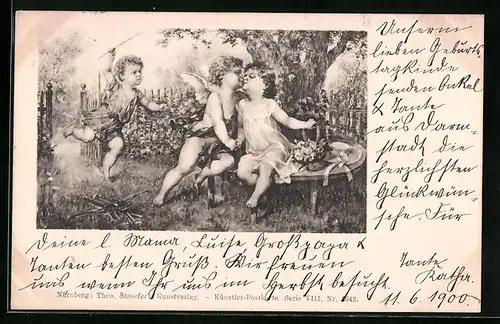 Unserm
lieben Geburts
tagkinde
senden Onkel
& Tante
aus Darm-
stadt die
herzlichsten
Glückwün-
sche. Für
Deine l. Mama, Luise Großpapa &
Tanten besten Gruß. Wir freuen
uns wenn Ihr uns im Herbst besucht.
Tante
Katha.
11.6.1900.
Nürnberg: Theo. Stroefer's Kunstverlag. – Künstler-Postkarte. Serie VIII, Nr. 5642.